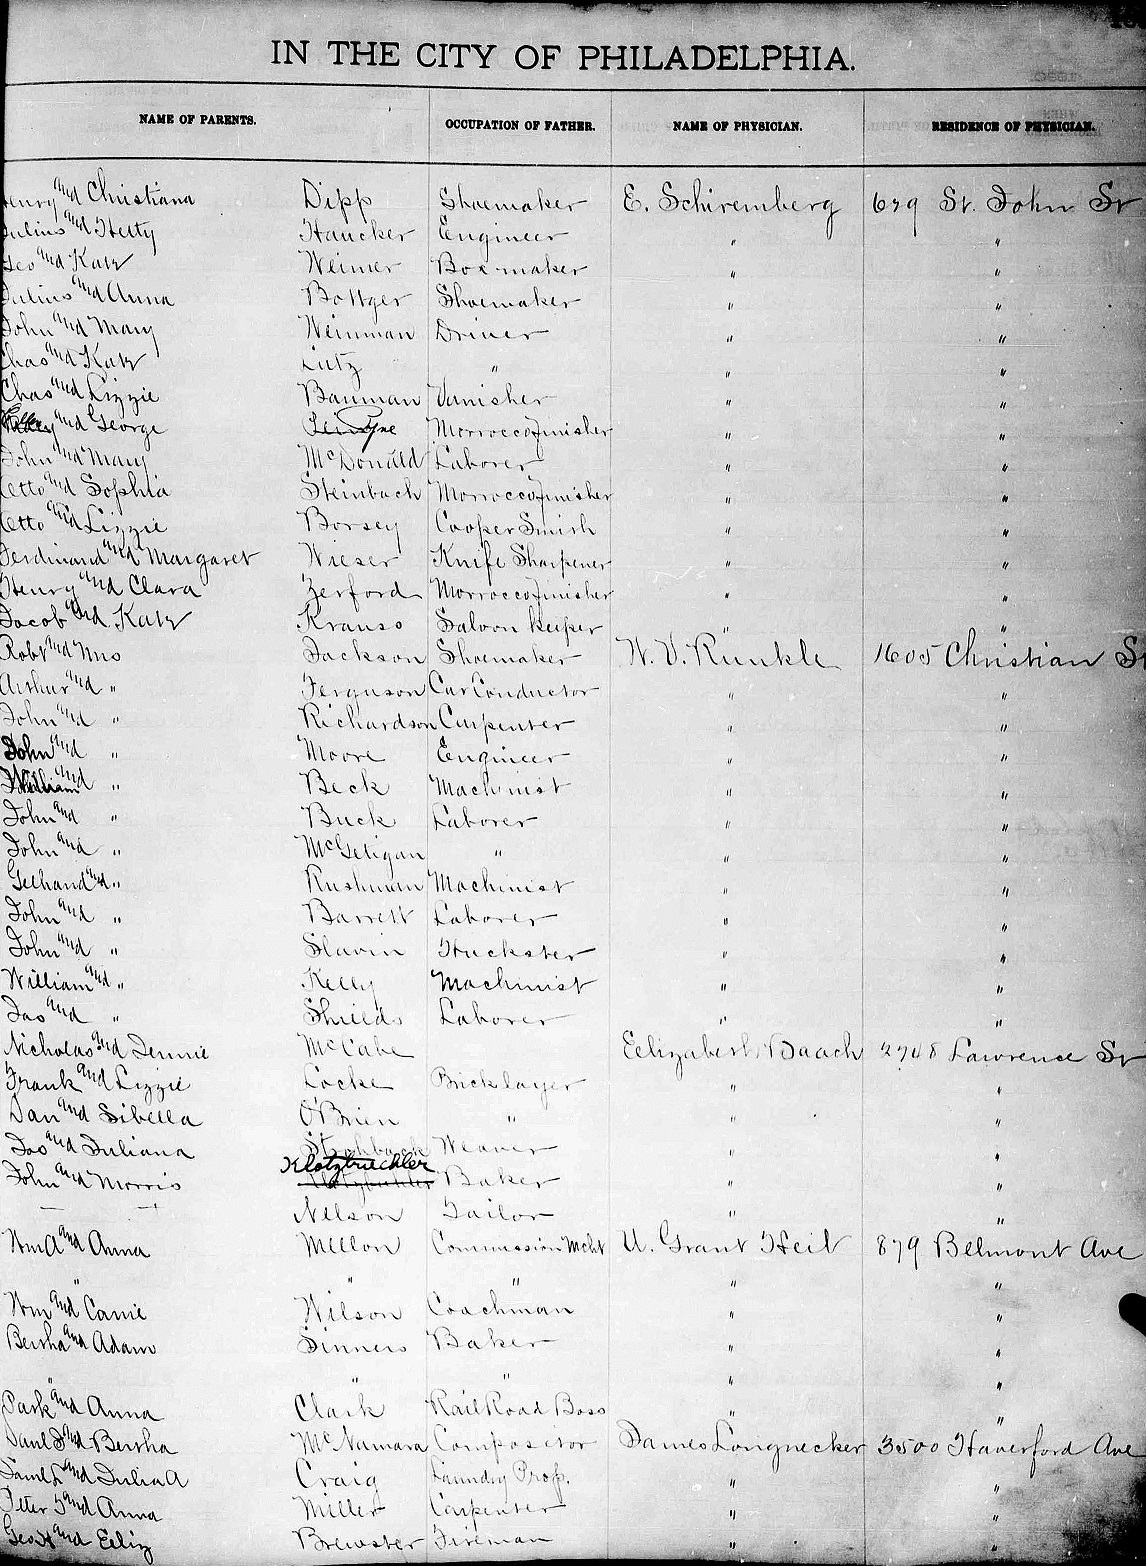 IN THE CITY OF PHILADELPHIA.
NAME OF PARENTS. OCCUPATION OF FATHER. NAME OF PHYSICIAN. RESIDENCE OF PHYSICIAN.
Henry and Christiana Dipp Shoemaker E. Schiremberg 629 St. John St
Julius and Hetty Haucker Engineer " "
Geo and Kate Weimer Box maker " "
Julius and Anna Bottger Shoemaker " "
John and Mary Weinman Driver " "
Chas and Kate Lutz " " "
Chas and Lizzie Bauman Vanisher " "
and George Morrocco finisher " "
John and Mary McDonald Laborer " "
Otto and Sophia Steinbach Morrocco finisher " "
Otto and Lizzie Borsey Cooper Smith " "
Ferdinand and Margaret Wieser Knife Sharpener " "
Henry and Clara Zerford Morrocco finisher " "
Jacob and Kate Krauss Saloon keeper " "
Robt and Mrs Jackson Shoemaker W. V. Runkle 1605 Christian St
Arthur and " Ferguson Car Conductor " "
John and " Richardson Carpenter " "
John and " Moore Engineer " "
William and " Beck Machinist " "
John and " Buck Laborer " "
John and " McGetigan " " "
and " Rushmun Machinist " "
John and " Barrett Laborer " "
John and " Slavin Huckster " "
William and " Kelly Machinist " "
Jas and " Shields Laborer " "
Nicholas and Jennie McCabe Eelizabeth Baach 2748 Lawrence St
Frank and Lizzie Locke Bricklayer " "
Dan and Sibella O'Brien " " "
Jas and Juliana Weaver " "
John and Morris Klotzbuechler Baker " "
— — Nelson Tailor " "
Wm A and Anna Mellon Commission Mcht U. Grant Heil 879 Belmont Ave
" " " " "
Wm and Carrie Wilson Coachman " "
Bertha and Adam Sinners Baker " "
" " " " "
Park and Anna Clark Rail Road Boss " "
Paul J and Bertha McNamara Compositor James Longnecker 3500 Haverford Ave
Saml L and Julia A Craig Laundry Prop. " "
Peter S and Anna Miller Carpenter " "
Geo H and Eeliz Brewster Fireman " "